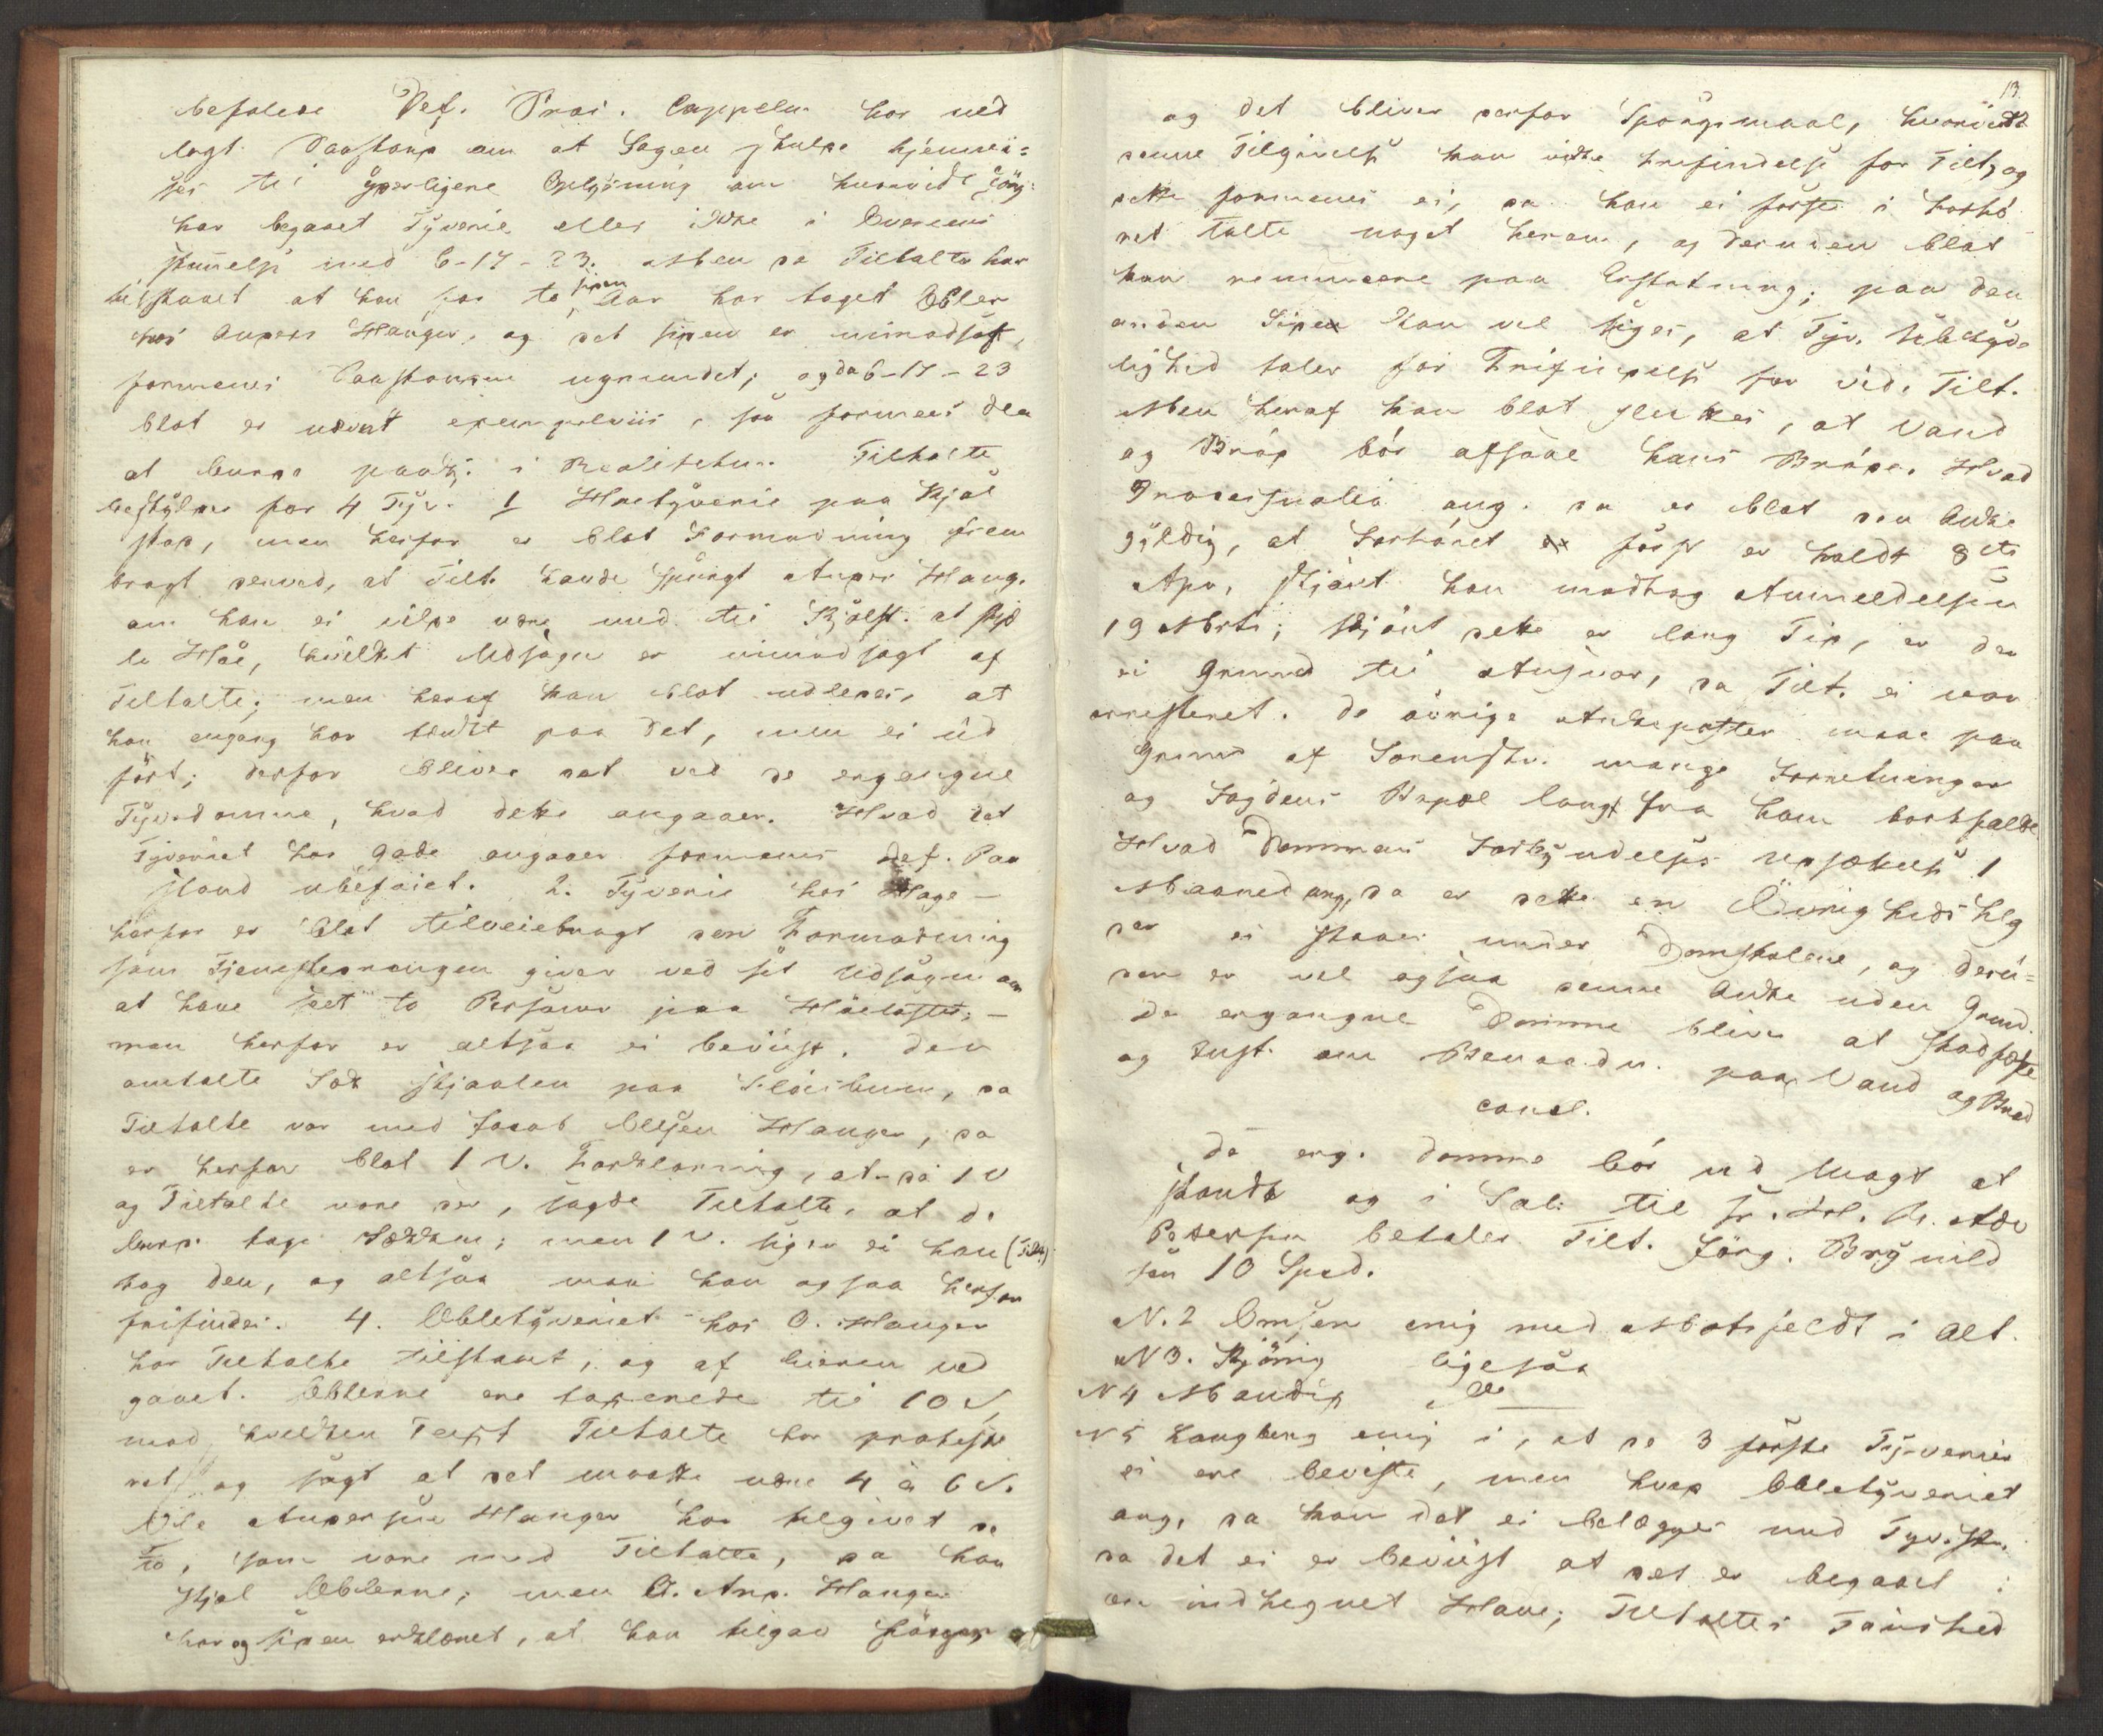 befalede Def. Proc. Cappelen har ned
lagt Paastand om at Sagen skulde hjemvi=
ses til yderligere Oplysning om hvorvidt Jörg.
har begaaet Tyverie eller ikke i Overeens
stemelse med 6-17-23. Men da Tiltalte har
tilstaaet at han for to siden Aar har taget Æbler
hos Anders Hanger, og det siden er uimodsagt,
formenes Paastanden ugrundet; og da 6-17-23
blot er nævnt exempelviis, saa formenes den
at burde paadk. i Realiteten. Tiltalte
beskyldes for 4 Tyv. 1 Høetyverie paa Kjøl
stad, men herfor er blot Formodning frem
bragt derved, at Tilt. havde spurgt Anders Hang.
om han ei vilde være med til Kjølst. at stjæ
le Höe, hvilket Udsagn er uimodsagt af
Tiltalte; men heraf kan blot udledes, at
han engang har tænkt paa det, men ei ud
fört; derfor bliver det ved de ergangne
Tyvsdomme, hvad dette angaaer. Hvad det
Tyveriet hos Gade angaaer formenes Def. Paa
stand ubeföiet. 2. Tyverie hos Hage –
herfor er blot tilveiebragt den Formodning
som Tjenestedrengen giver ved sit Udsagn om
at have seet to Personer paa Höeloftet; –
men herfor er altsaa ei beviist. Den
omtalte Sæk stjaalen paa Slöisbuen, da
Tiltalte var med Jacob Olsen Hanger, da
er herfor blot 1 V. Forklaring, at da 1 V
og Tiltalte vare der, sagde Tiltalte, at de
burde tage Sækken; men 1 V. siger ei han (Tilt.)
tog den, og altsaa maa han ogsaa herfor
frifindes. 4. Æbletyveriet hos O. Hanger
har Tiltalte tilstaaet, og af hieren ved
gaaet. Æblerne ere taxerede til 10 s,
mod hvilken Taxt Tiltalte har proteste
ret og sagt at det maatte være 4 à 6 s.
Ole Andersen Hanger har tilgivet de
to, som vare med Tiltalte, da han
stjal Æblerne; men O. And. Hanger
har og siden erklæret, at han tilgav Jörgen
13.
og det bliver derfor Spörgsmaal, hvorvidt
denne Tilgivelse kan virke frifindelse for Tilt, og
dette formenes ei, da han ei förste i Forhö
ret talte noget herom, og desuden blot
kan renuncere paa Erstatning; paa den
anden Siden kan vel siges, at Tyv. Ubetyde
lighed taler for Frifindelse for vid. Tilt.
Men heraf kan blot sluttes, at Vand
og Bröd bör afsone hans Bröde. Hvad
Processualia ang. da er blot den Anke
gyldig, at Forhöret er först er holdt 8de
Apr, skjönt han modtog Anmeldelsen
19 Marts; skjönt dette er lang Tid, er der
ei Grund til Ansvar, da Tilt. ei var
arresteret. De övrige Ankeposter maae paa
Grund af Sorenskr. mange Forretninger
og Fogdens Bopæl langt fra ham bortfalde
Hvad Dommens Forkyndelses Udsættelse 1
Maaned ang, da er dette en Övrigheds Hlg
der ei staaer under Domstolene, og desu=
den er vel ogsaa denne Anke uden Grund.
De ergangne Domme blive at stadfæste
og Just. om Benaadn. paa Vand og Bröd
concl.
De erg. Domme bör ved Magt at
stande og i Sal: til Pr. H. R. Adv
Petersen betaler Tilt. Jörg. Brynild
sen 10 Spd.
N. 2 Omsen enig med Motzfeldt i Alt.
N 3. Kjönig ligesaa
N 4 Mandix do
N 5 Langberg enig i, at de 3 förste Tyverier
ei ere beviste, men hvad Æbletyveriet
ang, da kan det ei belægges med Tyvsstr.
da det ei er beviist at det er begaaet i
en indhegnet Have; Tiltaltes Taushed